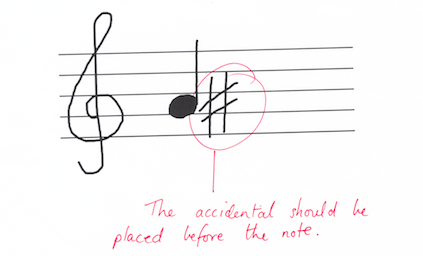 The accidental should be
placed before the note.